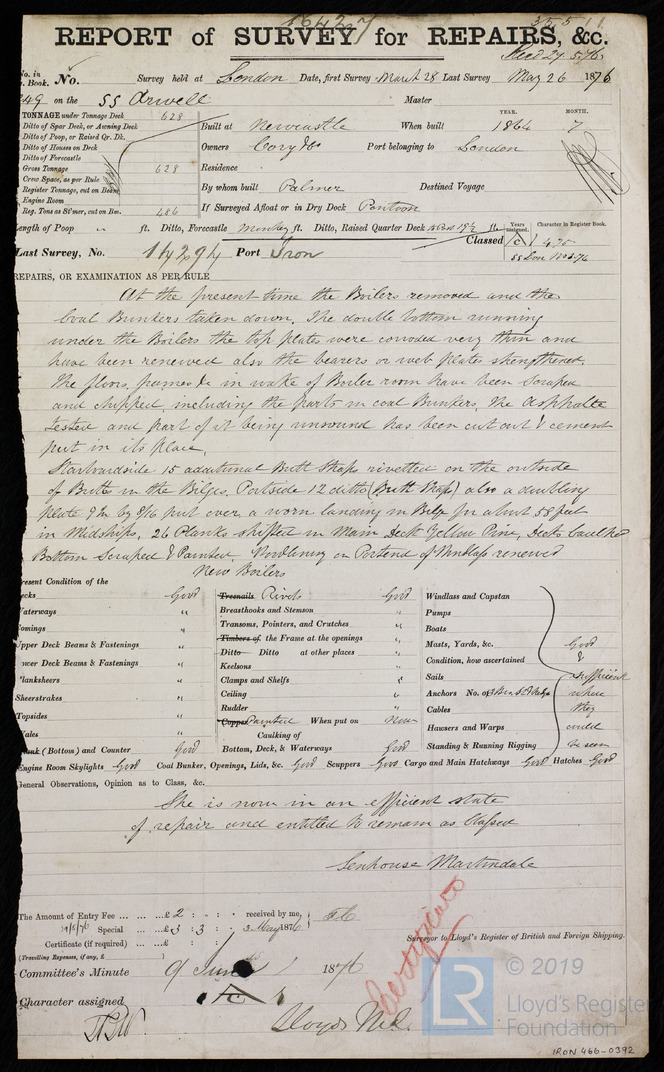 16427
REPORT of SURVEY for REPAIRS, &c.
No. in Book. No. Survey held at London Date, first Survey March 28 Last Survey May 26 1876
on the SS Orwell Master
TONNAGE under Tonnage Deck 628
Ditto of Spar Deck, or Awning Deck
Ditto of Poop, or Raised Qr. Dk.
Ditto of Houses on Deck
Ditto of Forecastle
Gross Tonnage 628
Crew Space, as per Rule
Register Tonnage, cut on Beam
Engine Room
Reg. Tons as St'mer, cut on Bm. 486
YEAR. MONTH.
Built at Newcastle When built 1864 7
Owners Cory & Co Port belonging to London
Residence
By whom built Palmer Destined Voyage
If Surveyed Afloat or in Dry Dock Pontoon
Length of Poop " ft. Ditto, Forecastle Monkey ft. Ditto, Raised Quarter Deck ft.
Years assigned. Character in Register Book.
Classed
Last Survey, No. 14294 Port Iron
REPAIRS, OR EXAMINATION AS PER RULE
At the present time the Boilers removed and the
Coal Bunkers taken down. The double bottom running
under the Boilers the top plates were corroded very thin and
have been renewed also the bearers or web plates strengthened.
The floors, frames &c in wake of Boiler room have been Scraped
and chipped, including the parts in coal Bunkers, The Asphalte
tested and part of it being unsound has been cut out & cement
put in its place,
Starboardside 15 additional Butt Straps rivetted on the outside
of Butts in the Bilges, Portside 12 ditto (Butt Straps) also a doubling
plate 9 in by 9/16 put over a worn landing in Bilge for about 58 feet
in Midships, 26 Planks shifted in Main Deck Yellow Pine, Deck caulked
Bottom Scraped & Painted. on Port end of Windlass renewed
New Boilers
Present Condition of the
Decks Good
Waterways "
Comings "
Upper Deck Beams & Fastenings "
Lower Deck Beams & Fastenings "
Planksheers "
Sheerstrakes "
Topsides "
Wales "
Plank (Bottom) and Counter Good
Treenails Rivets Good
Breasthooks and Stemson "
Transoms, Pointers, and Crutches "
Timbers of the Frame at the openings "
Ditto Ditto at other places "
Keelsons "
Clamps and Shelfs "
Ceiling "
Rudder "
Copper Painted When put on New
Caulking of
Bottom, Deck, & Waterways Good
Windlass and Capstan
Pumps
Boats
Masts, Yards, &c.
Condition, how ascertained
Sails
Anchors No. of
Cables
Hawsers and Warps
Standing & Running Rigging
Good
&
sufficient
where
they
could
be seen
Engine Room Skylights Good Coal Bunker, Openings, Lids, &c. Good Scuppers Good Cargo and Main Hatchways Good Hatches Good
General Observations, Opinion as to Class, &c.
She is now in an efficient state
of repair and entitled to remain as Classed
Senhouse Martindale
The Amount of Entry Fee ... £ 2 : - : - received by me,
Special ... £ 3 : 3 : - 3 May 1876
Certificate (if required) ... £ : :
(Travelling Expenses, if any, £
Surveyor to Lloyd's Register of British and Foreign Shipping.
Certificate
Committee's Minute 9 June 1876
Character assigned
Lloyds
© 2019
LR
Lloyd's Register
Foundation
IRON 466-0392